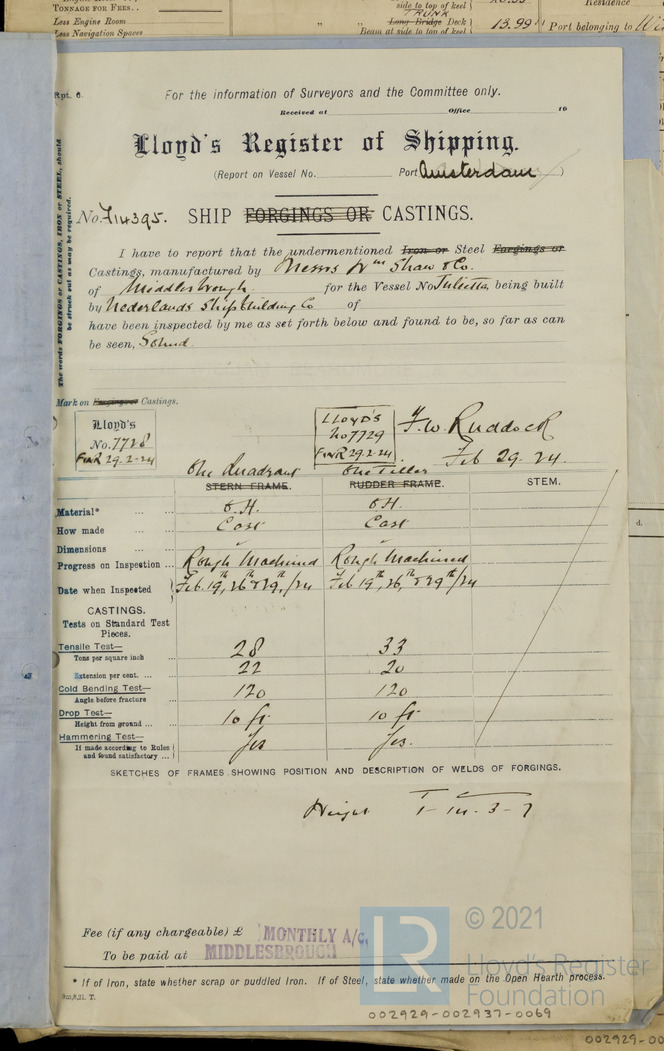 TONNAGE FOR FEES..
side to top of keel
Residence
Less Engine Room
TRUNK
" " Long Bridge Deck
13.99
Port belonging to
Less Navigation Spaces
Beam at side to top of keel
Rpt. 6.
For the information of Surveyors and the Committee only.
Received at Office 19
Lloyd's Register of Shipping.
(Report on Vessel No. Port Amsterdam )
No. 714395. SHIP FORGINGS OR CASTINGS.
The words FORGINGS or CASTINGS, IRON or STEEL, should
be struck out as may be required.
I have to report that the undermentioned Iron or Steel Forgings or
Castings, manufactured by Messrs Wm Shaw & Co.
of Middlesbrough. for the Vessel No Juliette, being built
by Nederlands Shipbuilding Co of
have been inspected by me as set forth below and found to be, so far as can
be seen, Sound.
Mark on Forgings or Castings.
Lloyd's
No. 7728
FWR 29.2.24
LLOYD'S
No 7729
FWR 29.2.24
F.W. Ruddock
Feb 29. 24.
One Quadrant One Tiller
STERN FRAME. RUDDER FRAME. STEM.
Material* ... ... O.H. O.H.
How made ... ... Cast Cast
Dimensions ... ...
Progress on Inspection ... Rough Machined Rough Machined
Date when Inspected Feb. 19th, 26th & 29th/24 Feb 19th, 26th & 29th/24
CASTINGS.
Tests on Standard Test
Pieces.
Tensile Test— 28 33
Tons per square inch ...
Extension per cent. ... ... 22 20
Cold Bending Test— 120 120
Angle before fracture ...
Drop Test— 10 ft 10 ft
Height from ground ... ...
Hammering Test— Yes Yes.
If made according to Rules
and found satisfactory ...
SKETCHES OF FRAMES SHOWING POSITION AND DESCRIPTION OF WELDS OF FORGINGS.
Weight T C
1-14-3-7
Fee (if any chargeable) £ MONTHLY A/C,
To be paid at MIDDLESBROUGH
* If of Iron, state whether scrap or puddled Iron. If of Steel, state whether made on the Open Hearth process.
LR
© 2021
Lloyd's Register
Foundation
002929-002937-0069
002929-00
d.